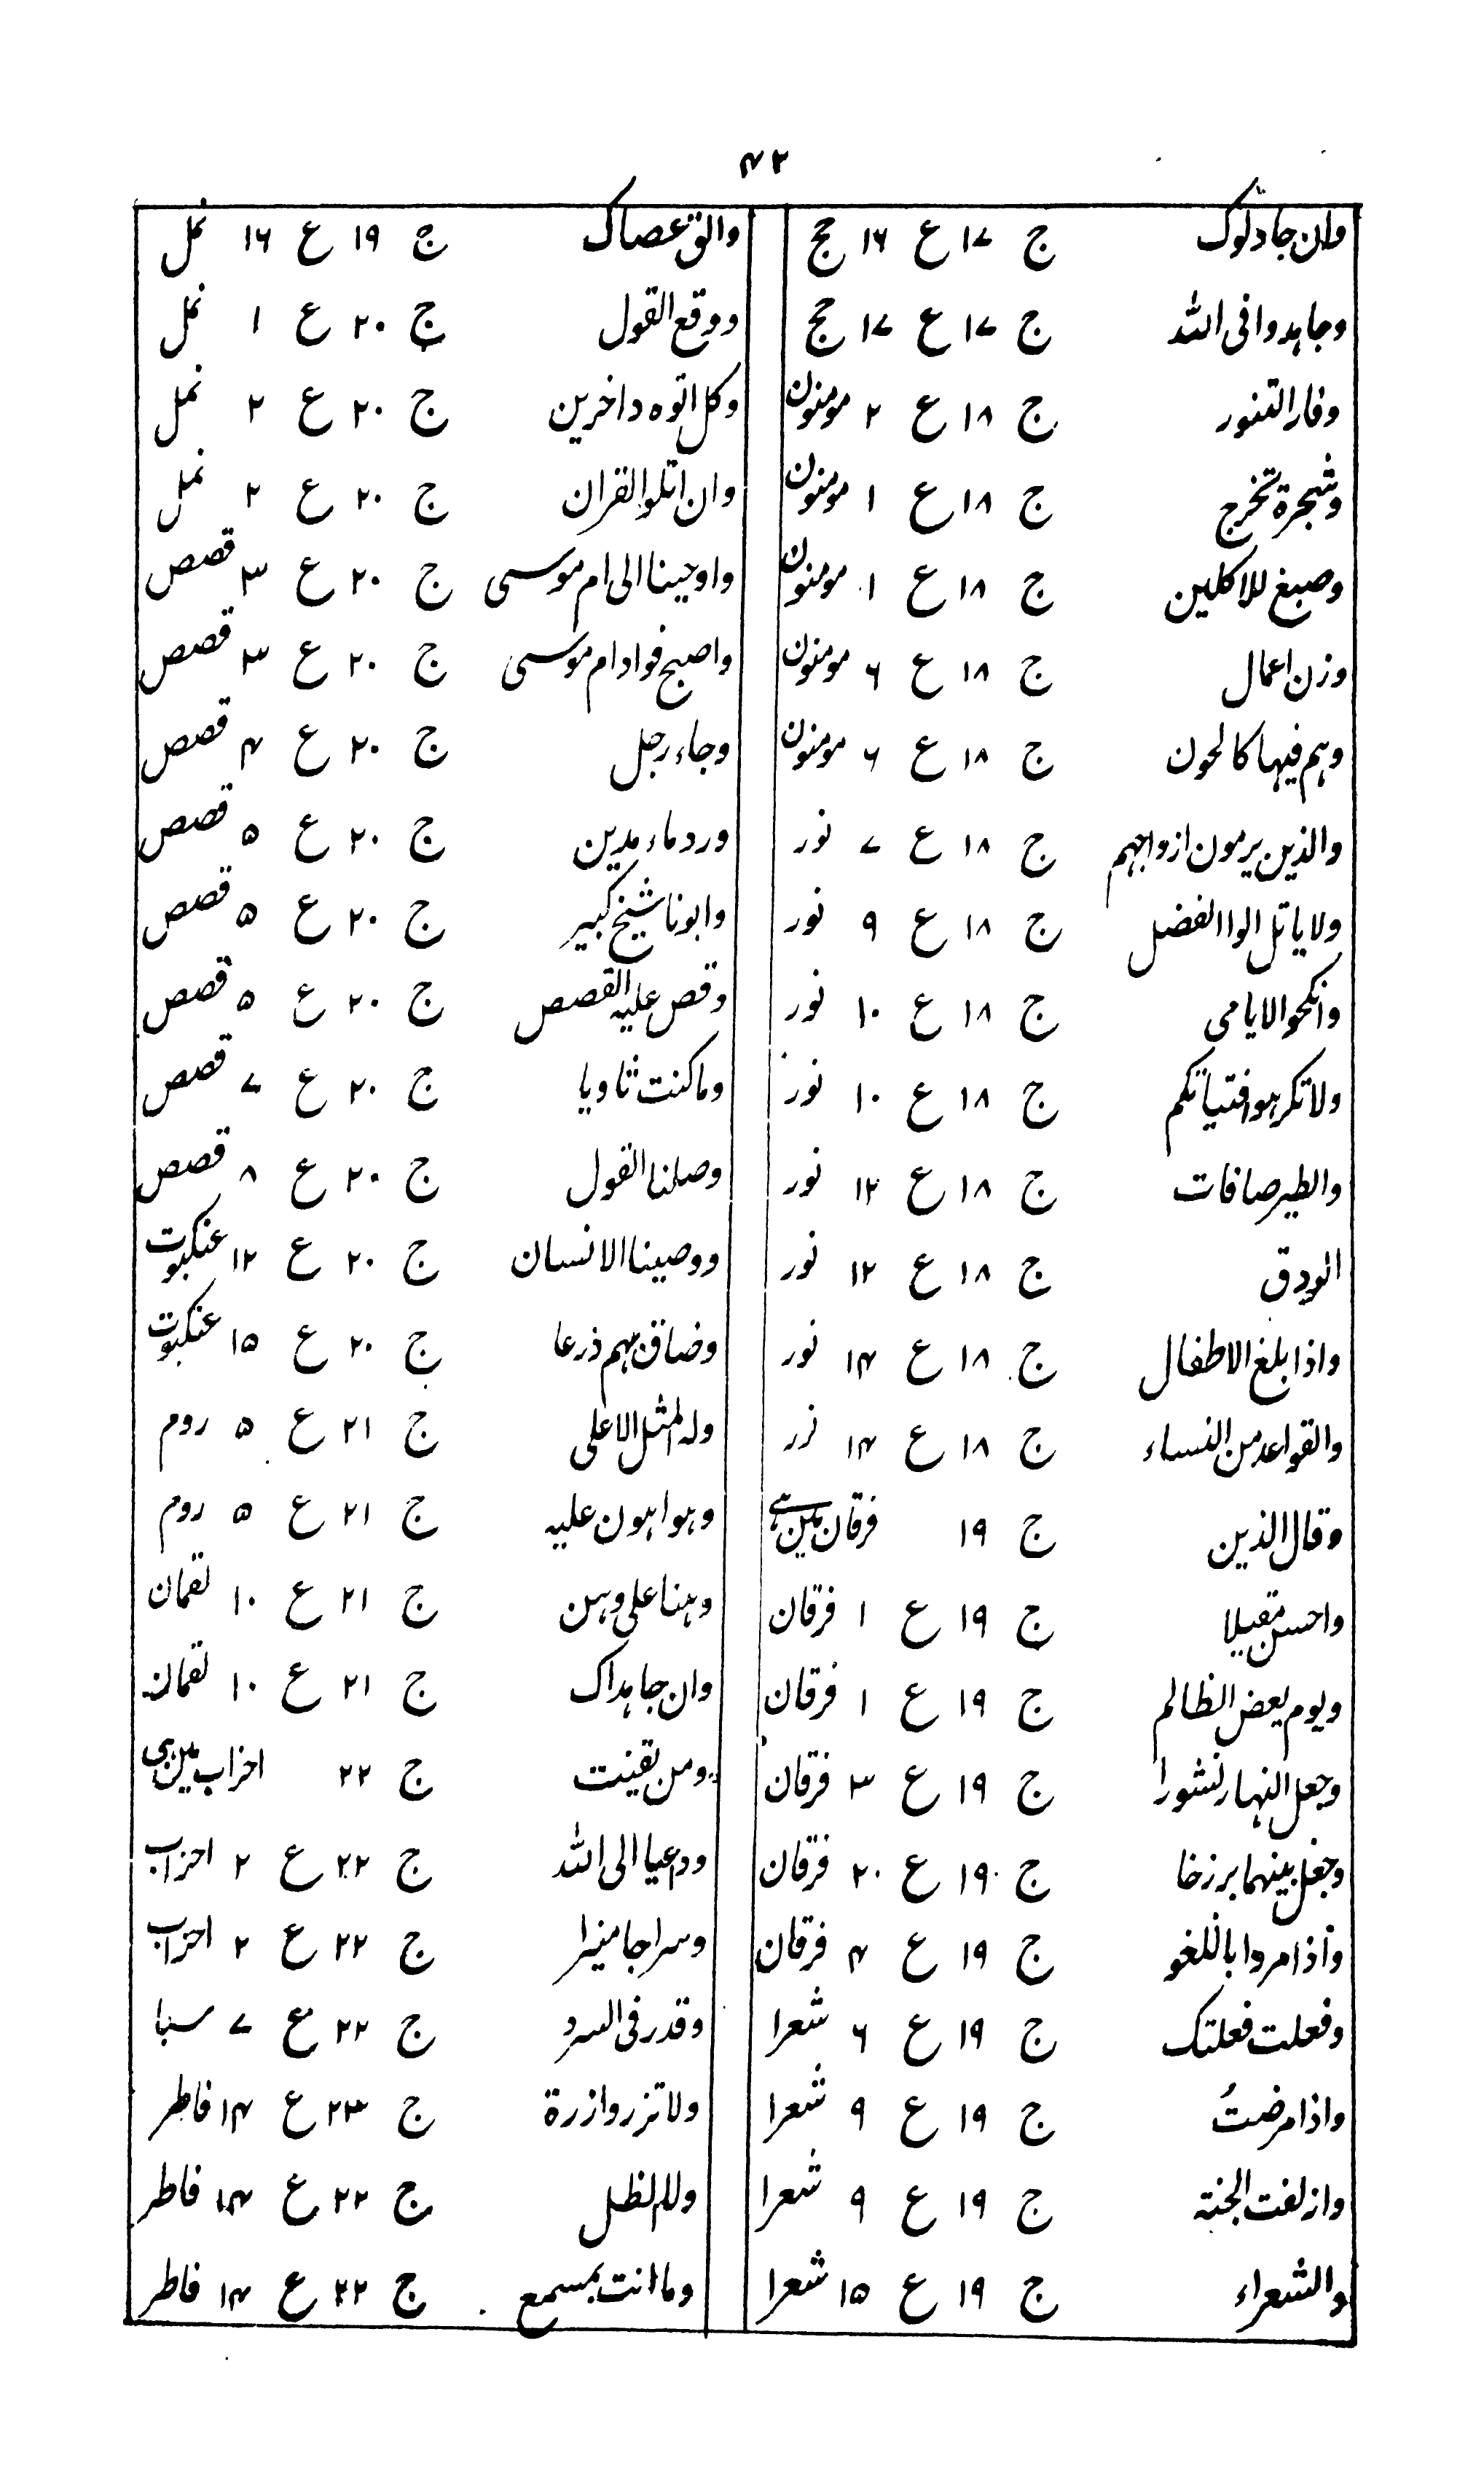 ۴۲
وان جادلوک ج ۱۷ ع ۱۶ حج
وجاہدوا فی اللہ ج ۱۷ ع ۱۷ حج
وفار التنور ج ۱۸ ع ۲ مومنون
وشجرۃ تخرج ج ۱۸ ع ۱ مومنون
وصبغ للاکلین ج ۱۸ ع ۱ مومنون
وزن اعمال ج ۱۸ ع ۶ مومنون
وہم فیہا کالحون ج ۱۸ ع ۶ مومنون
والذین یرمون ازواجہم ج ۱۸ ع ۷ نور
ولا یاتل الوا الفضل ج ۱۸ ع ۹ نور
وانکحو الایامی ج ۱۸ ع ۱۰ نور
ولا تکرہوا فتیاتکم ج ۱۸ ع ۱۰ نور
والطیر صافات ج ۱۸ ع ۱۲ نور
الودق ج ۱۸ ع ۱۲ نور
واذا بلغ الاطفال ج ۱۸ ع ۱۴ نور
والقواعد من النساء ج ۱۸ ع ۱۴ نور
وقال الذین ج ۱۹ فرقان مین ہے
واحسن مقیلا ج ۱۹ ع ۱ فرقان
ویوم یعض الظالم ج ۱۹ ع ۱ فرقان
وجعل النہار نشورا ج ۱۹ ع ۳ فرقان
وجعل بینہما برزخا ج ۱۹ ع ۲۰ فرقان
واذا مروا باللغو ج ۱۹ ع ۴ فرقان
وفعلت فعلتک ج ۱۹ ع ۶ شعرا
واذا مرضتُ ج ۱۹ ع ۹ شعرا
وازلفت الجنۃ ج ۱۹ ع ۹ شعرا
والشعراء ج ۱۹ ع ۱۵ شعرا
والق عصاک ج ۱۹ ع ۱۶ نمل
ووقع القول ج ۲۰ ع ۱ نمل
وکل اتوہ داخرین ج ۲۰ ع ۲ نمل
وان اتلو القران ج ۲۰ ع ۲ نمل
واوحینا الی ام موسی ج ۲۰ ع ۳ قصص
واصبح فواد ام موسی ج ۲۰ ع ۳ قصص
وجاء رجل ج ۲۰ ع ۴ قصص
ورد ماء مدین ج ۲۰ ع ۵ قصص
وابونا شیخ کبیر ج ۲۰ ع ۵ قصص
وقص علیہ القصص ج ۲۰ ع ۵ قصص
وما کنت ثاویا ج ۲۰ ع ۷ قصص
وصلنا القول ج ۲۰ ع ۸ قصص
ووصینا الانسان ج ۲۰ ع ۱۲ عنکبوت
وضاق بہم ذرعا ج ۲۰ ع ۱۵ عنکبوت
ولہ المثل الاعلی ج ۲۱ ع ۵ روم
وہو اہون علیہ ج ۲۱ ع ۵ روم
وہنا علی وہن ج ۲۱ ع ۱۰ لقمان
وان جاہداک ج ۲۱ ع ۱۰ لقمان
ومن یقینت ج ۲۲ احزاب مین ہی
ودعیا الی اللہ ج ۲۲ ع ۲ احزاب
وسراجا منیرا ج ۲۲ ع ۲ احزاب
وقدر فی السرد ج ۲۲ ع ۷ سبا
ولا تزر وازرۃ ج ۲۳ ع ۱۴ فاطر
ولا الظل ج ۲۲ ع ۱۴ فاطر
وما انت بمسمع ج ۲۲ ع ۱۴ فاطر